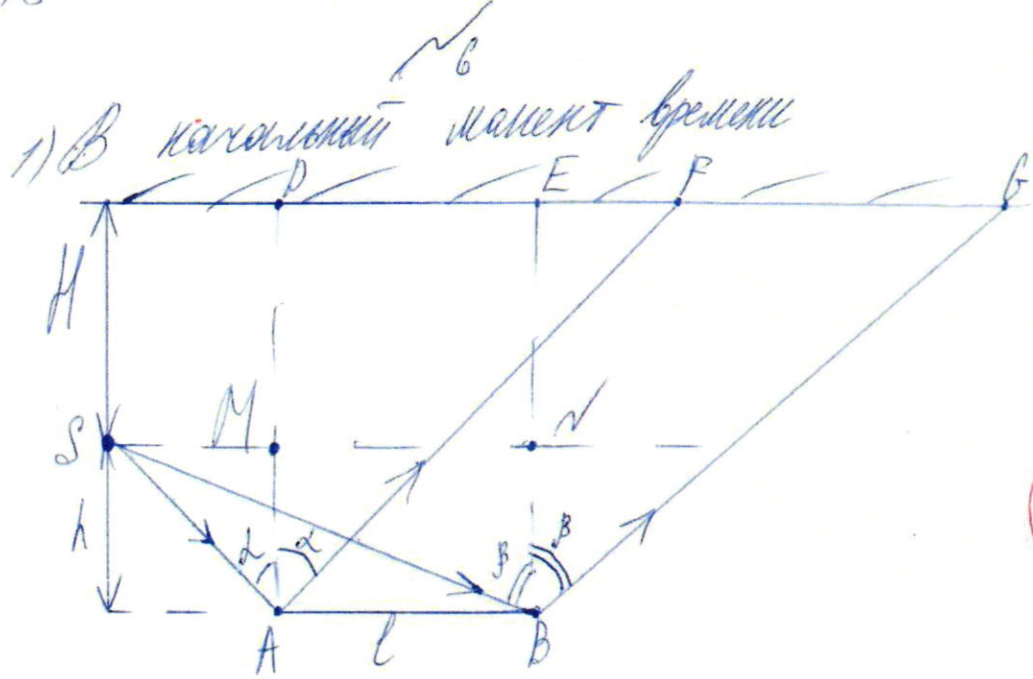 №6
1) В начальный момент времени
D E F G
H
S M N
h
α α β β
A l B